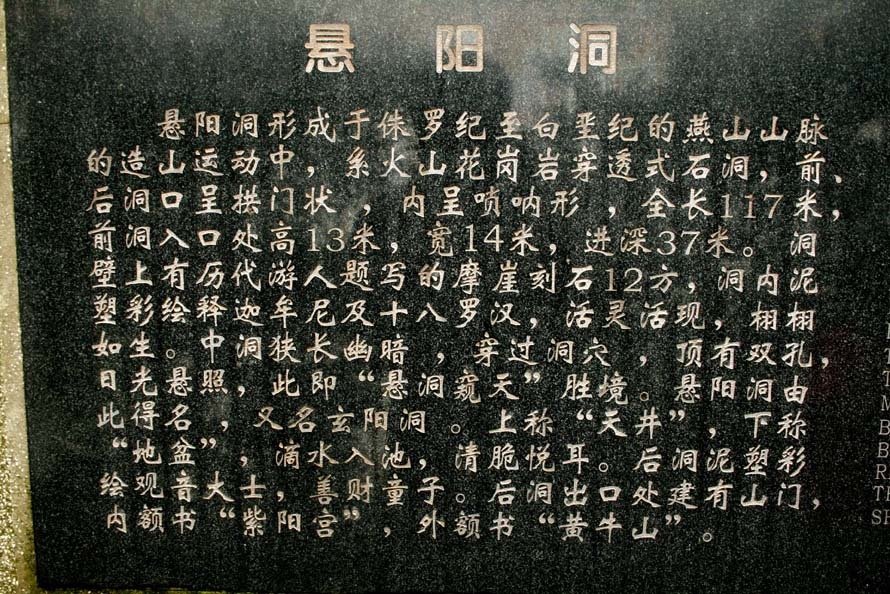 悬阳洞
悬阳洞形成于侏罗纪至白垩纪的燕山山脉
的造山运动中，系火山花岗岩穿透式石洞，前、
后洞口呈拱门状，内呈唢呐形，全长117米，
前洞入口处高13米，宽14米，进深37米。洞
壁上有历代游人题写的摩崖刻石12方，洞内泥
塑彩绘释迦牟尼及十八罗汉，活灵活现，栩栩
如生。中洞狭长幽暗，穿过洞穴，顶有双孔，
日光悬照，此即“悬洞窥天”胜境。悬阳洞由
此得名，又名玄阳洞。上称“天井”，下称
“地盆”，滴水入池，清脆悦耳。后洞泥塑彩
绘观音大士，善财童子。后洞出口处建有山门，
内额书“紫阳宫”，外额书“黄牛山”。